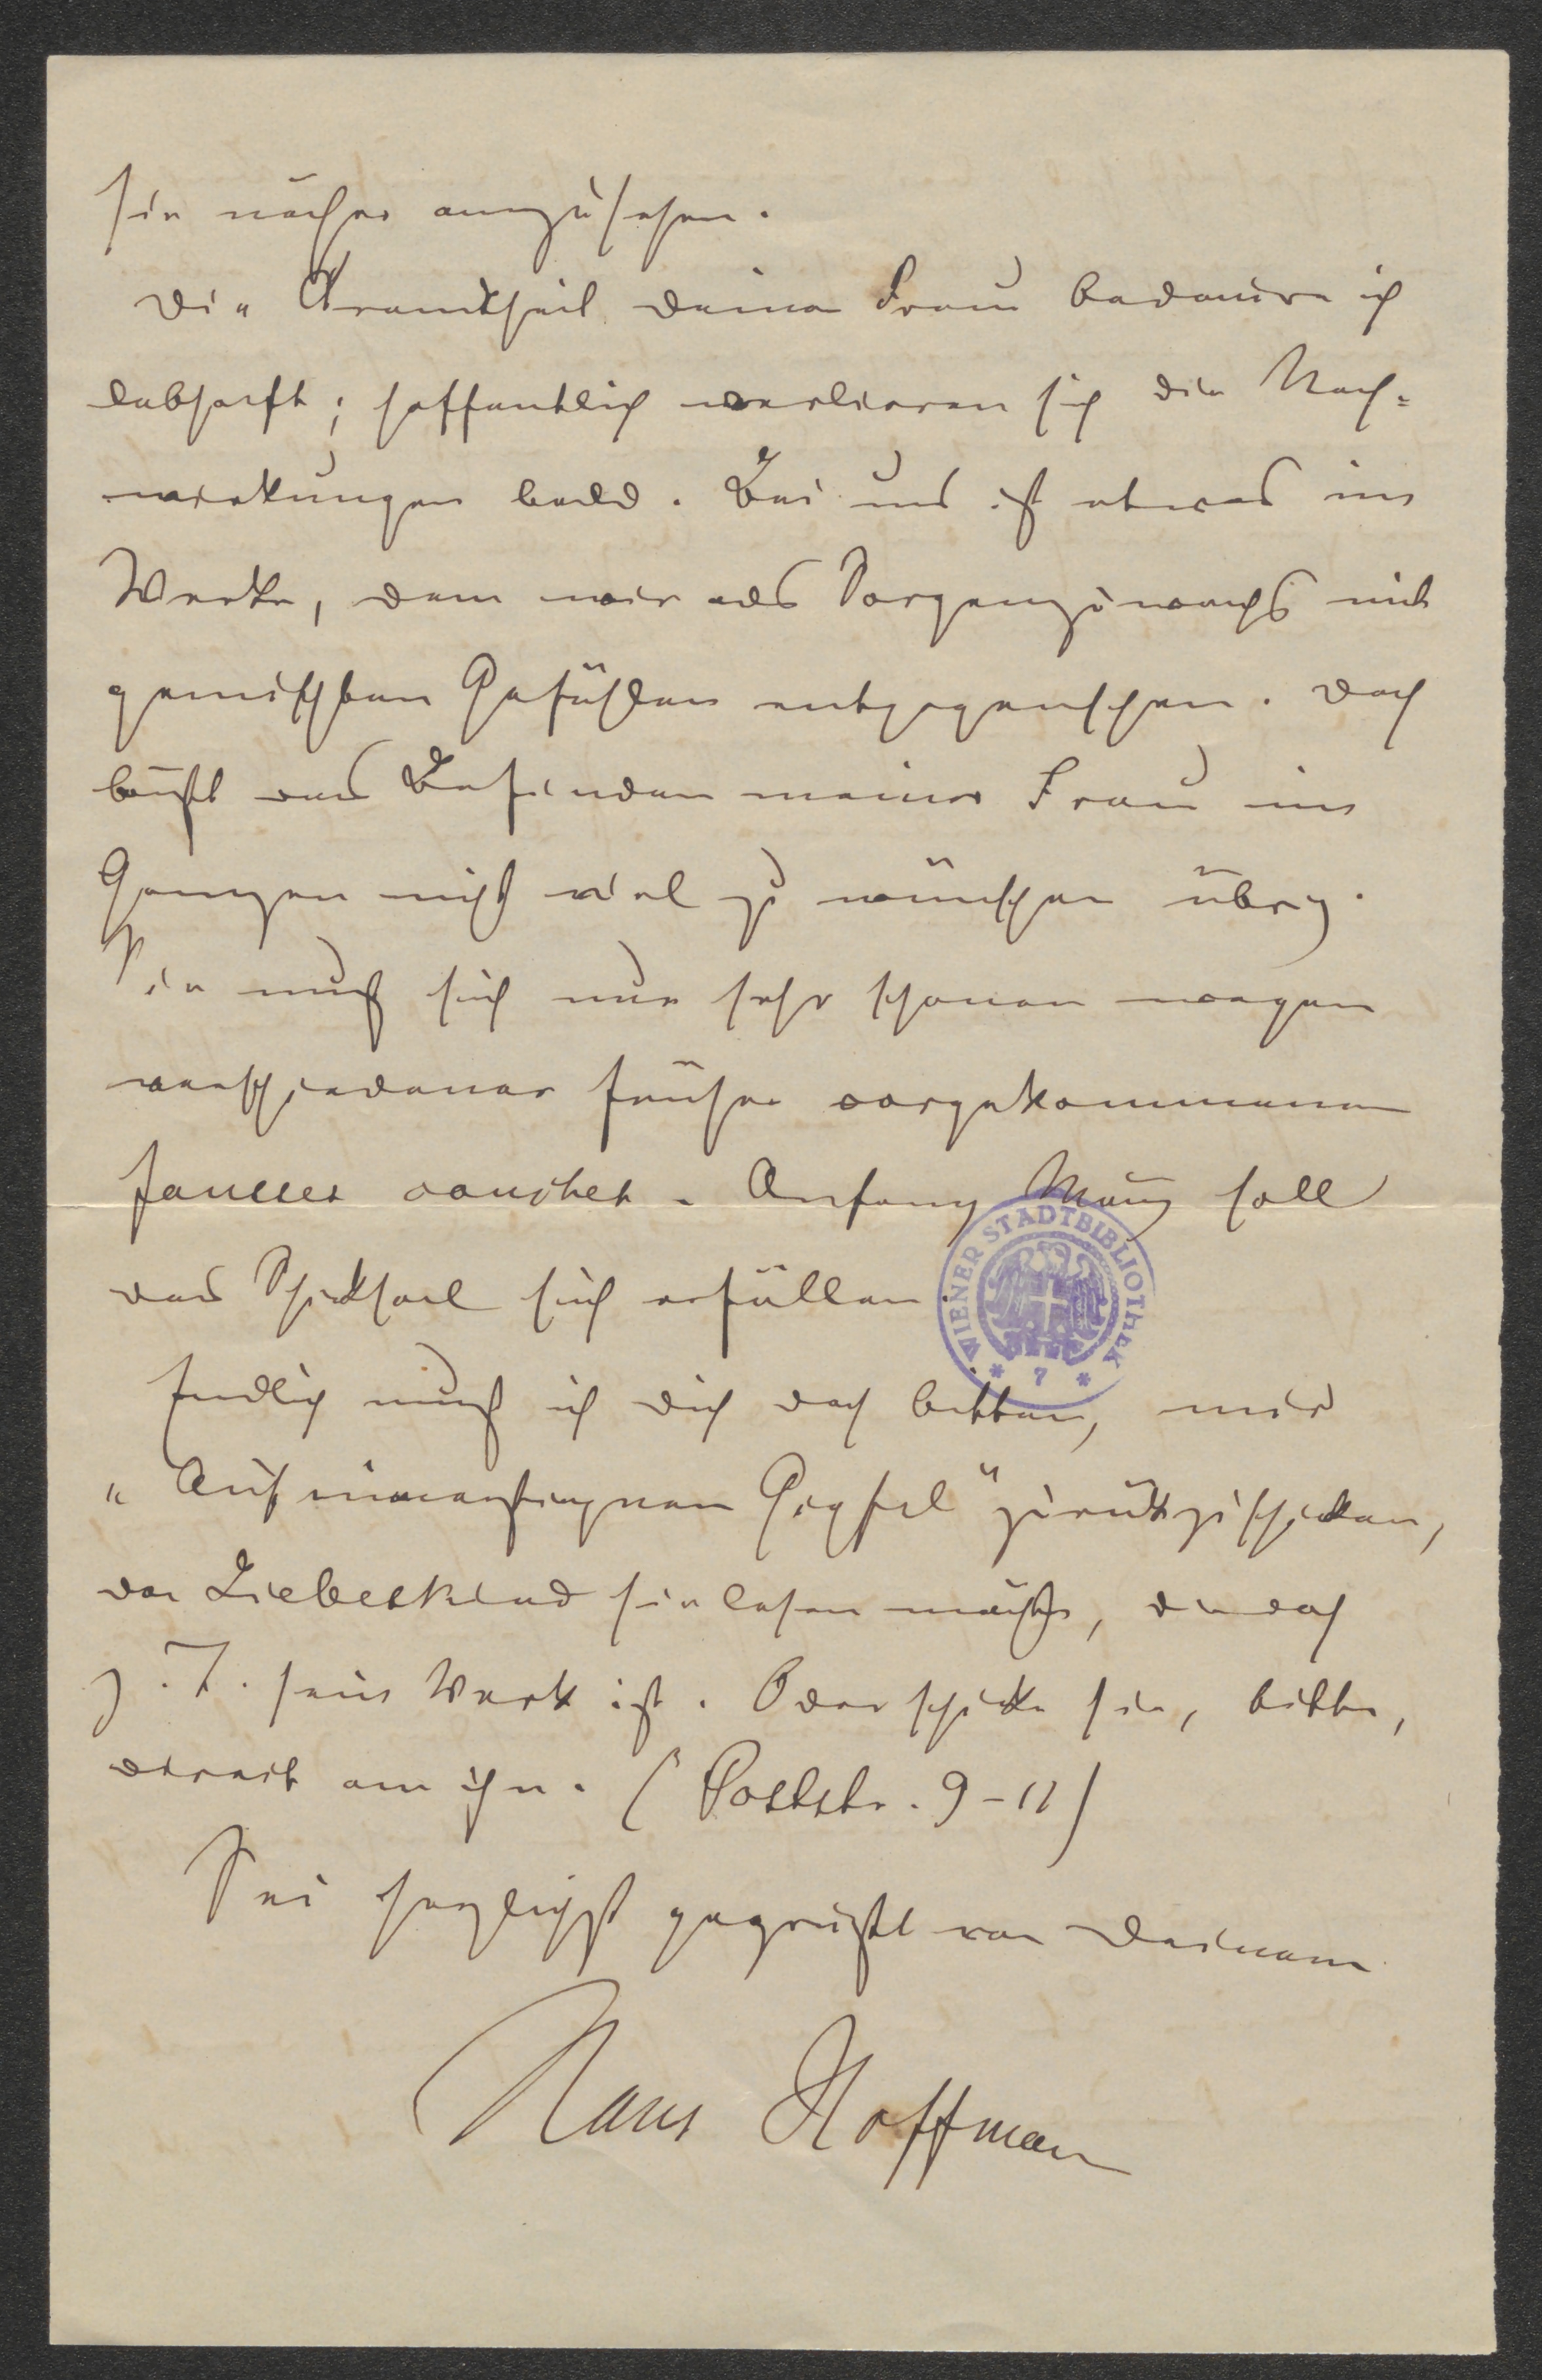 sie näher anzusehen.
Die Krankheit Deiner Frau bedaure ich
lebhaft; hoffentlich verlieren sich die Nach-
wirkungen bald. Bei uns ist etwas im
Werke, dem wir als Sorgenzuwachs mit
gemischten Gefühlen entgegensehen. Doch
läßt das Befinden meiner Frau im
Ganzen nicht viel zu wünschen übrig.
Sie muß sich nur sehr schonen wegen
verschiedener früher vorgekommener
. Anfang März soll
das Schicksal sich erfüllen.
Endlich muß ich Dich doch bitten, mir
„Auf einem Gipfel" zurückzuschicken,
da Liebeskind sie lesen möchte, da doch
z. T. sein Werk ist. Oder schicke sie, bitte,
direct an ihn. (Poststr. 9-11)
Sei herzlichst gegrüßt von Deinem
Hans Hoffmann
WIENER STADTBIBLIOTHEK
* 7 *